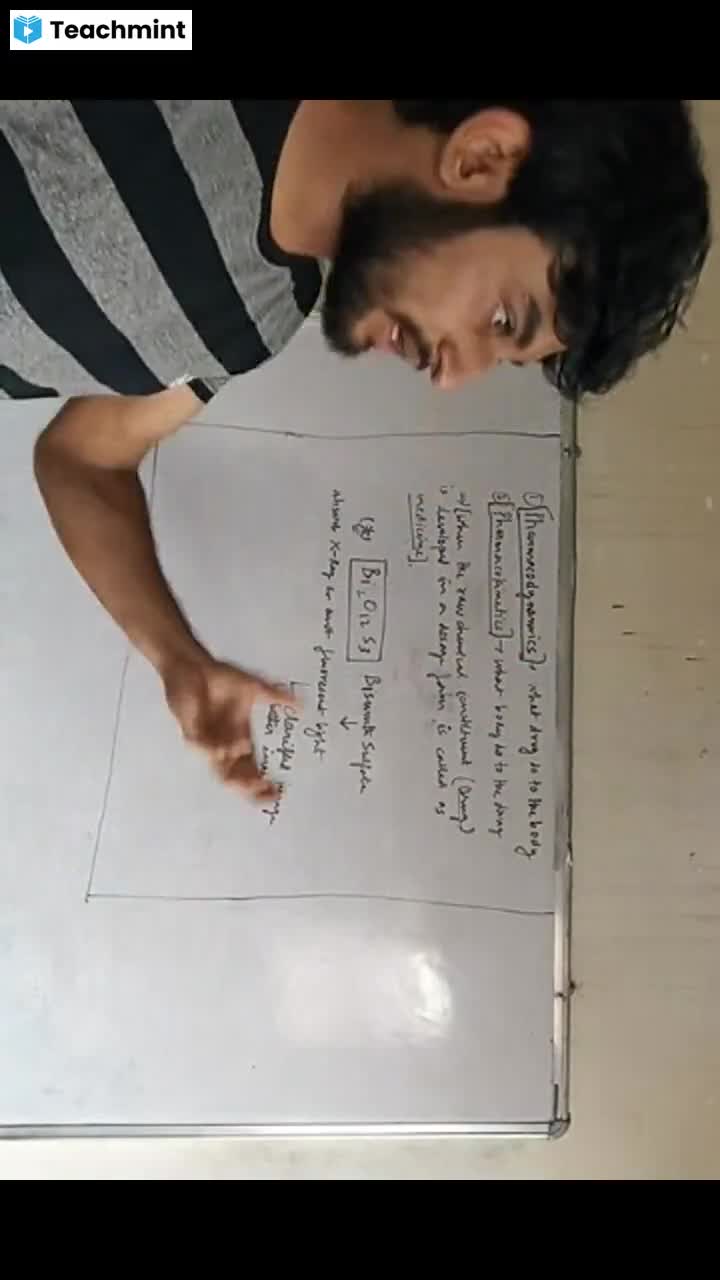 Teachmint
① [Pharmacodynamics] → what drug do to the body
② [Pharmacokinetics] → what body do to the drug
→ [When the raw chemical constituent (Drug)
is developed in a dosage form is called as
medicine].
Bi₂O₁₂S₃ Bismuth Sulfate
↓
absorb X-Ray or emit fluorescent light
↳ Clarified image
better